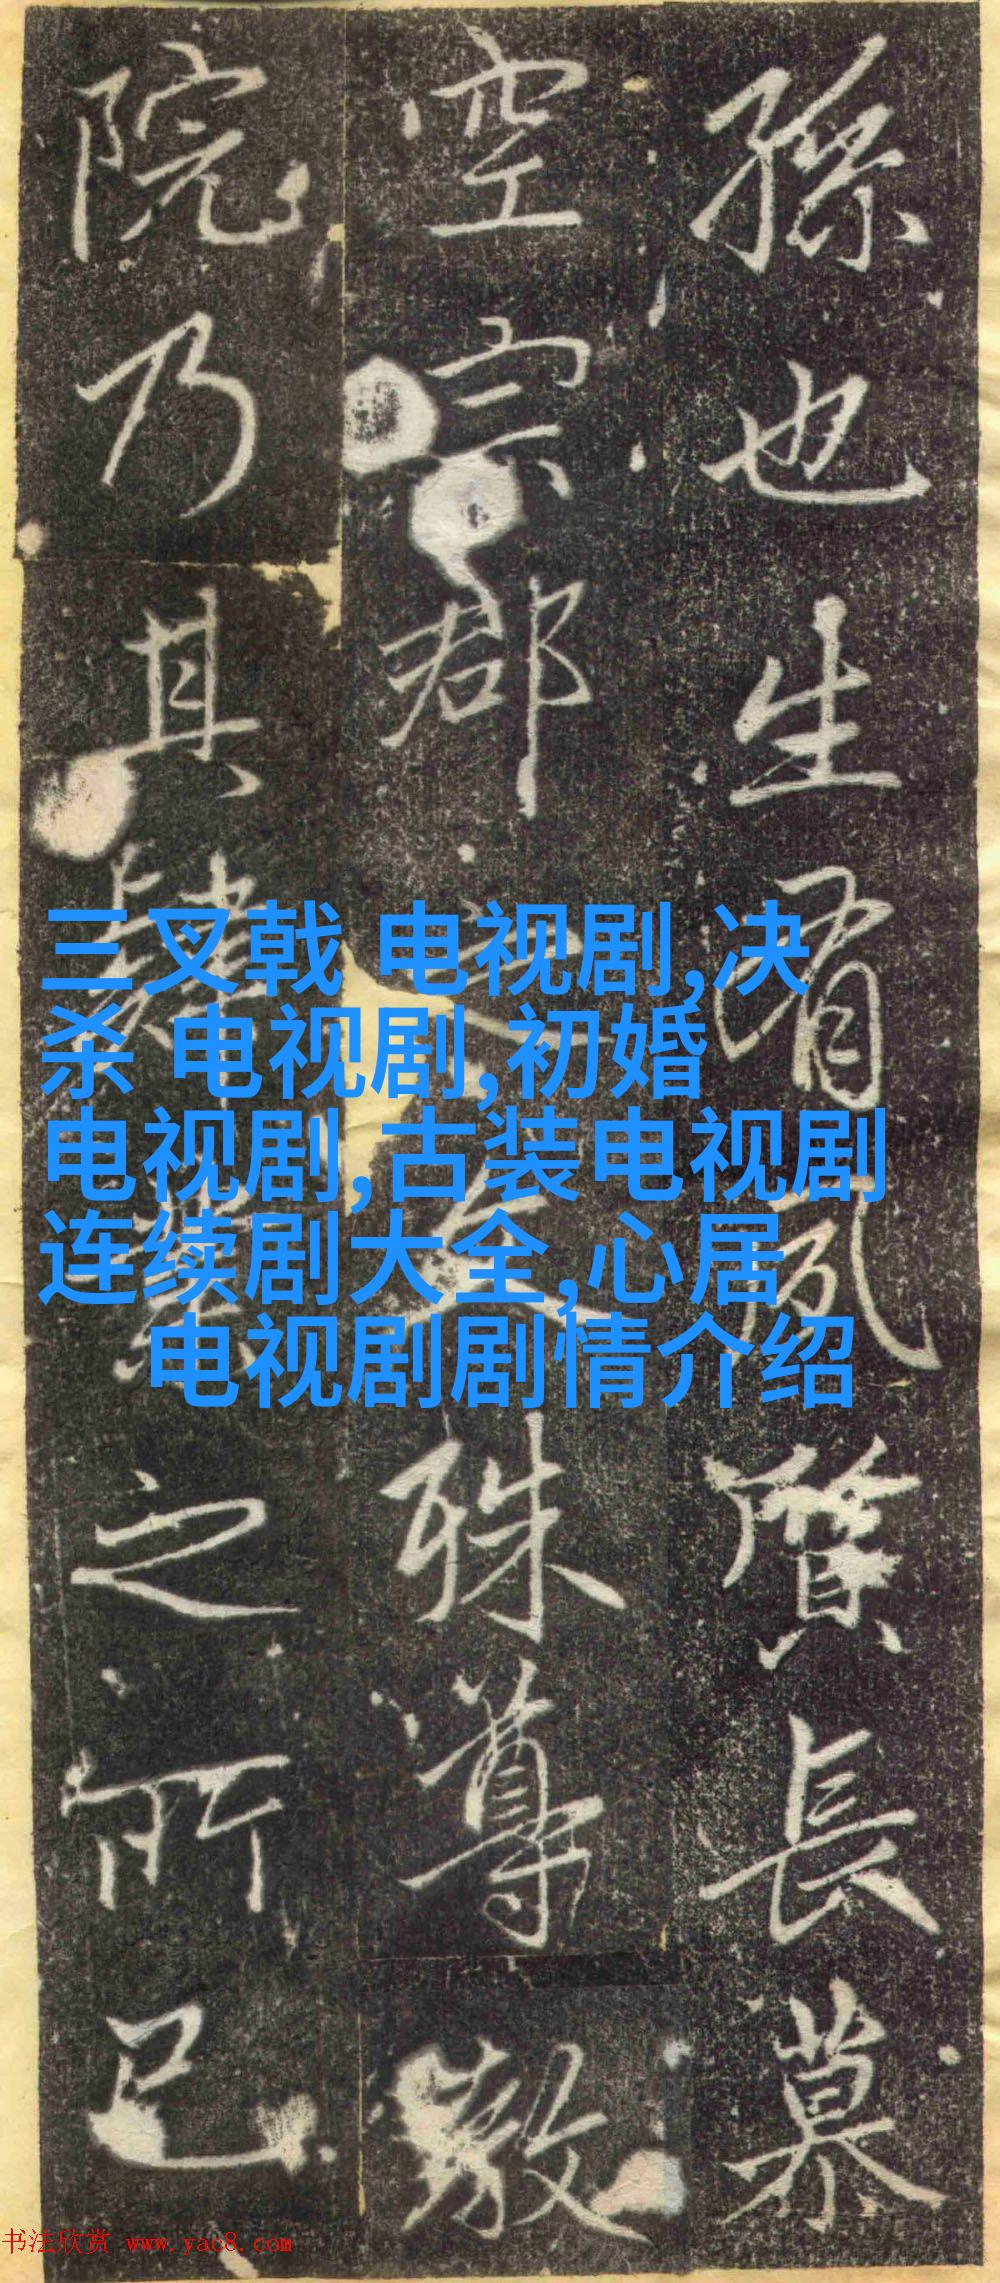 孫也生有夙質長慕
空宗郡之人殊尊敬
院乃其肄業之所已
三叉戟 电视剧,决
杀 电视剧,初婚
电视剧,古装电视剧
连续剧大全,心居
电视剧剧情介绍
书法欣赏 www.yac8.com